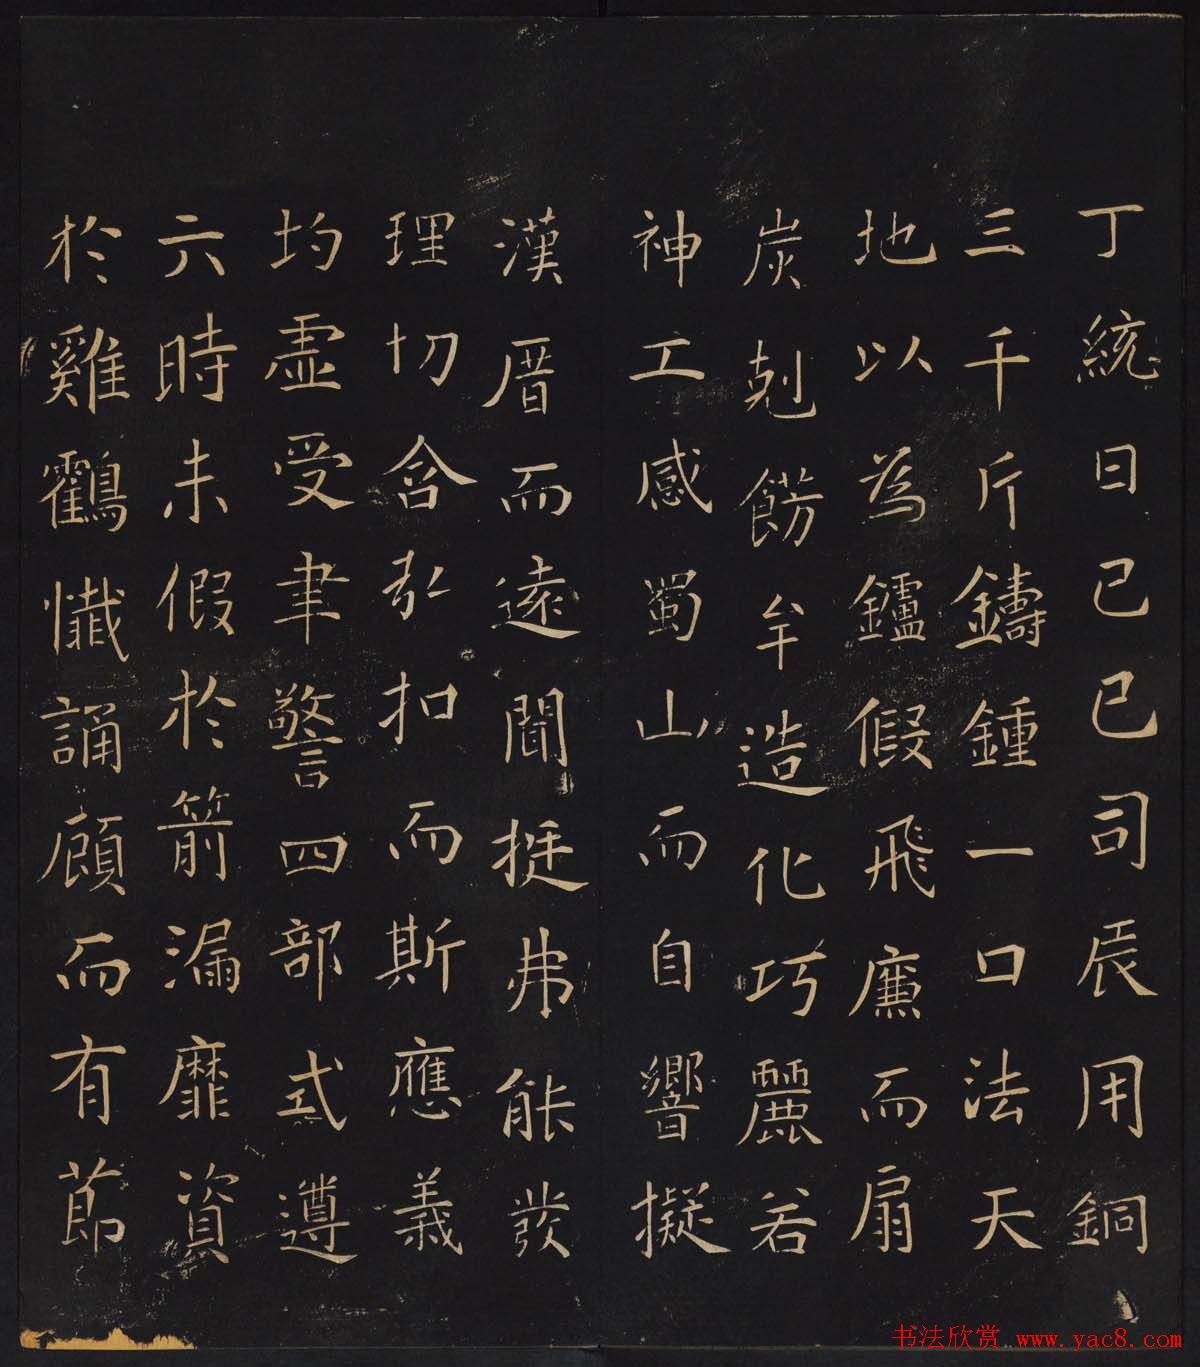 丁統日己巳司辰用銅
三千斤鑄鍾一口法天
地以為鑪假飛廉而扇
炭剋餝牟造化巧麗若
神工感蜀山而自響擬
漢厝而遠聞挻弗能發
理切含弘扣而斯應義
均虛受聿警四部式遵
六時未假於箭漏靡資
於雞鸖懺誦願而有節
书法欣赏 www.yac8.com